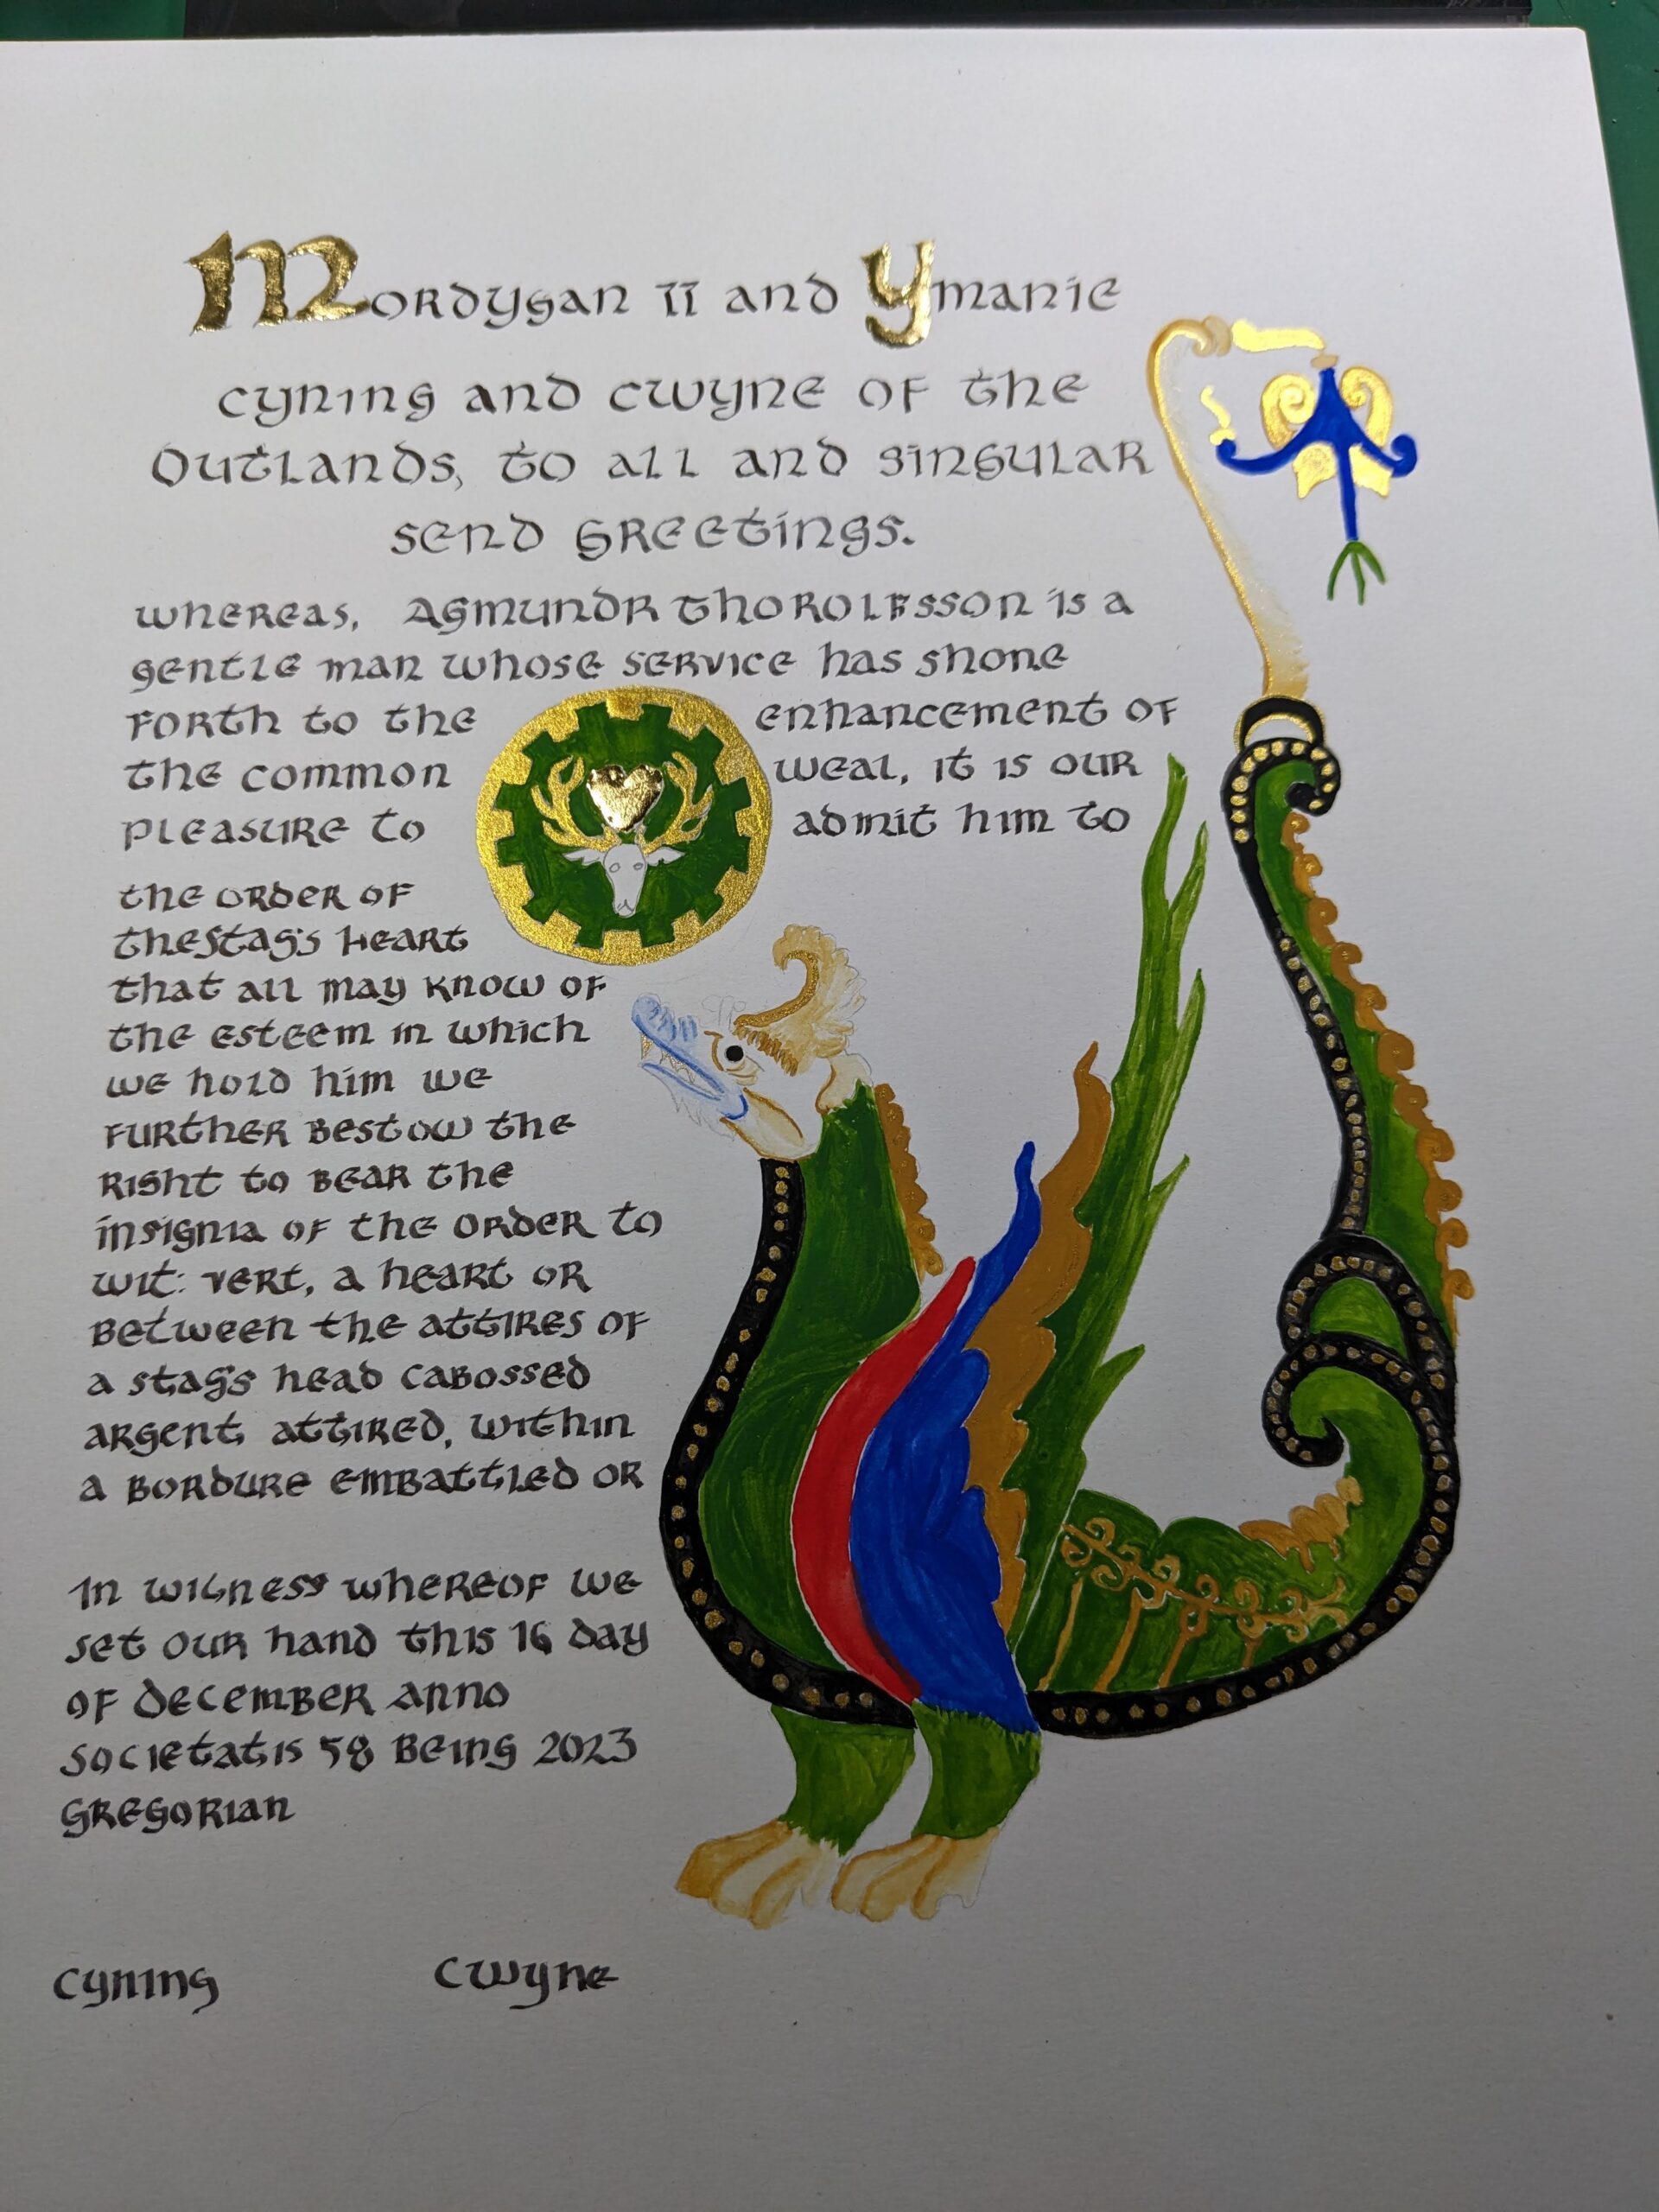 Mordygan II and Ymanie
Cyning and Cwyne of the
Outlands, to all and singular
send greetings.
whereas, Agmundr Thorolfsson is a
gentle man whose service has shone
forth to the enhancement of
the common weal, it is our
pleasure to admit him to
the order of
the Stag's Heart
that all may know of
the esteem in which
we hold him we
further bestow the
right to bear the
insignia of the order to
wit: vert, a heart or
between the attires of
a stag's head cabossed
argent attired, within
a bordure embattled or
In witness whereof we
set our hand this 16 day
of december anno
societatis 58 being 2023
gregorian
Cyning Cwyne